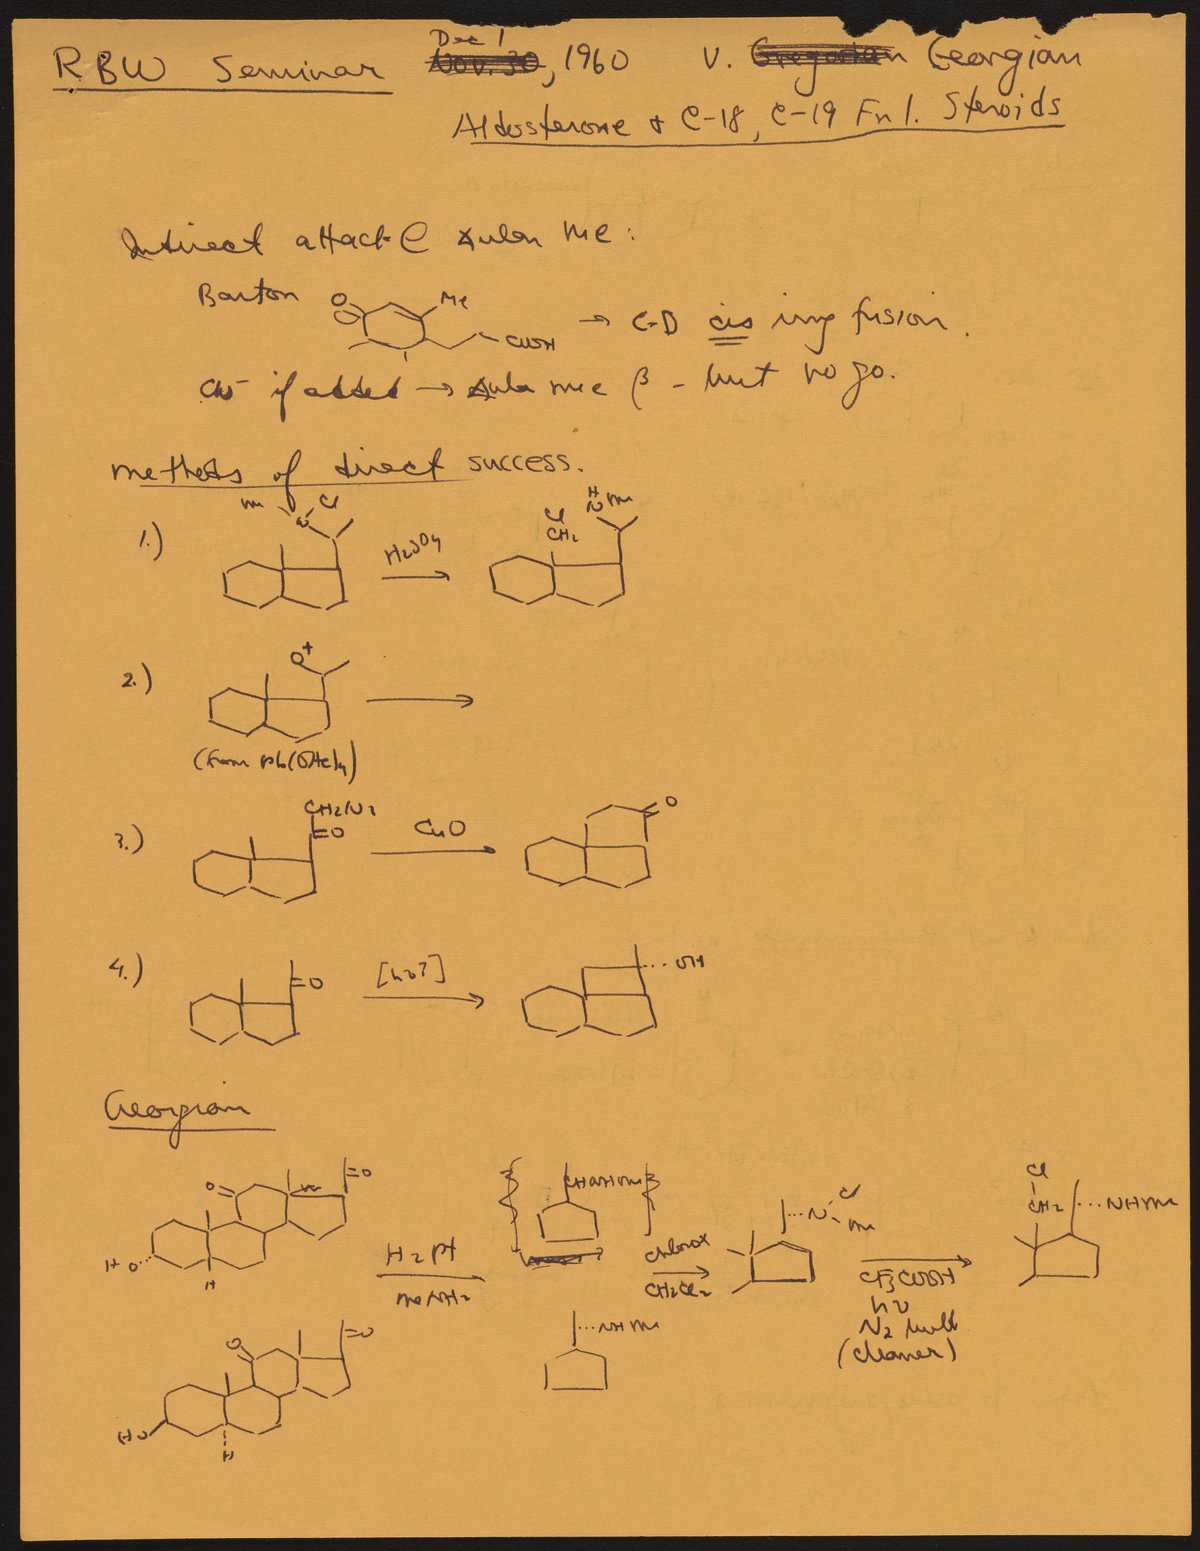 RBW Seminar Dec 1 Nov. 30, 1960 V. Gregorian Georgian
Aldosterone + C-18, C-19 Fnl. Steroids
Indirect attack C angular me:
Barton O Me COOH → C-D cis ring fusion.
CN⁻ if added → angular me β - but no go.
methods of direct success.
1.) Me N Cl H₂SO₄ Cl CH₂ H N Me
2.) O⁺
(from Pb(OAc)₄)
3.) CH₂N₂ =O CuO O
4.) =O [hν?] ...OH
Georgian
O =O HO... H H₂ Pt MeNH₂ CHOHNHMe Clorox CH₂Cl₂ ...N Cl Me CF₃COOH hν N₂ (cleaner) Cl CH₂ ...NHMe
O =O HO H ...NHMe